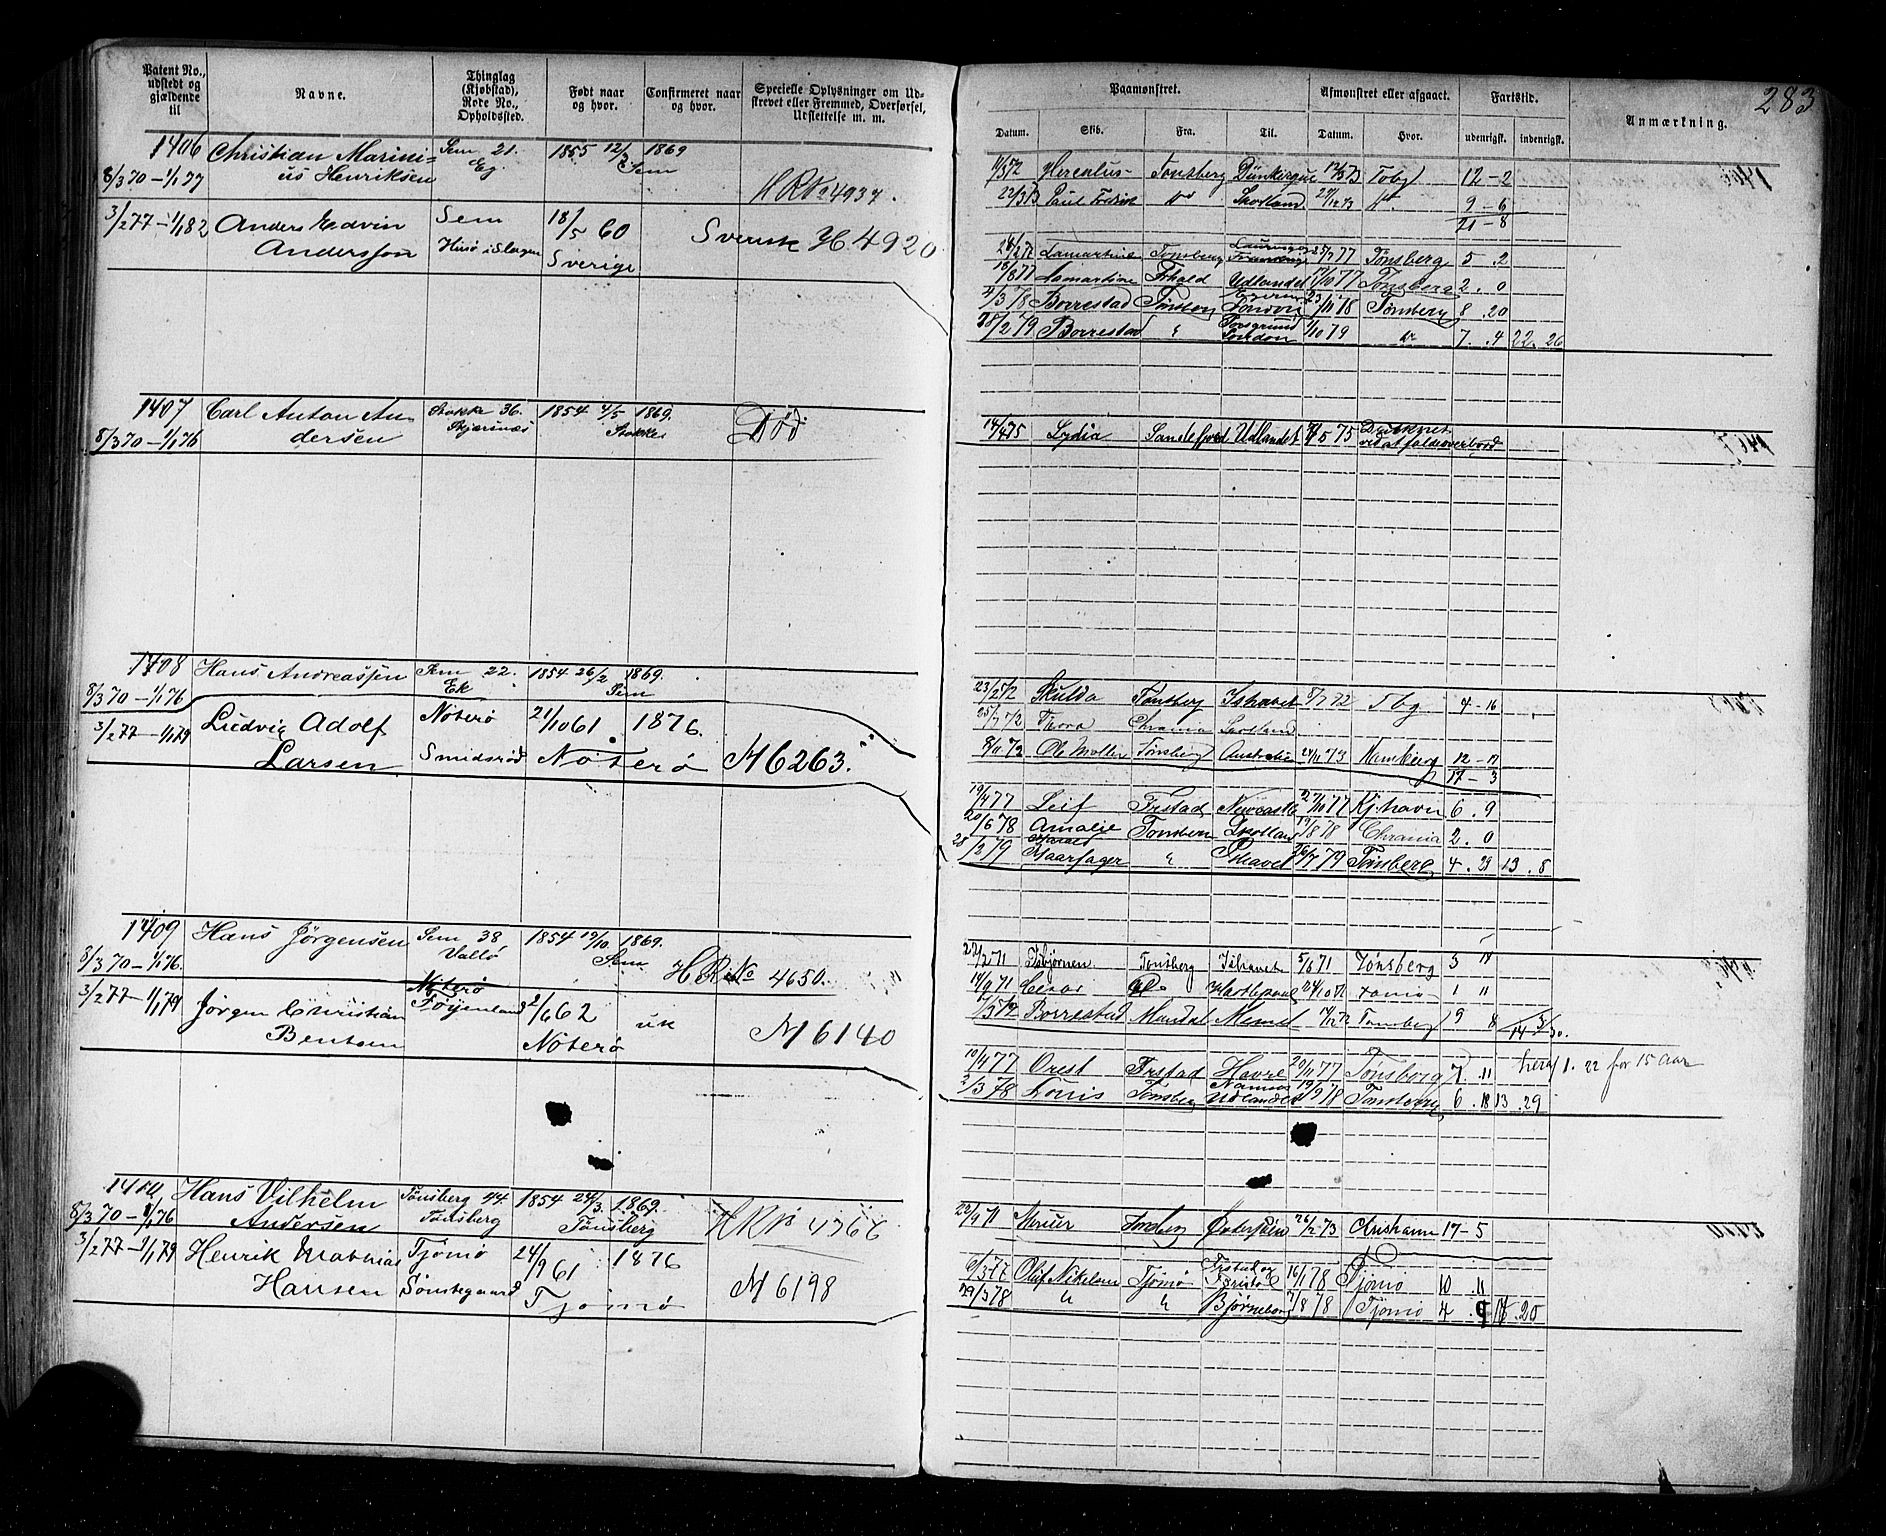 283
Patent No., udstedt og gjældende til
Navne.
Thinglag (Kjøbstad), Rode No., Opholdssted.
Født naar og hvor.
Confirmeret naar og hvor.
Specielle Oplysninger om Udskrevet eller Fremmed, Overførsel, Udslettelse m. m.
Paamønstret.
Afmønstret eller afgaaet.
Fartstid.
Anmærkning.
Datum. Skib. Fra. Til. Datum. Hvor. udenrigsk. indenrigsk.
1406 Christian Marini- Sem 21. 1855 12/3 1869
8/3 70 – 1/1 77 us Henriksen Ej Sem
H R No 4934.
3/2 77 – 1/1 82 Anders Edvin Sem 18/5 60 Svensk H 4920
Andersson Husø i Slagen Sverige
Hercules Tønsberg Dünkirque 12/3 73 Tobg 12 – 2
22/3 73 Paul Fredrik do Skotland 27/12 73 do 9 – 6
21 – 8
28/2 77 Lamartine Tønsberg 77 Tønsberg 5 . 2
Lamartine Frhald Udlandet 77 Tønsberg 2 . 0
4/3 78 Borrestad Tønsberg London 23/11 78 Tønsberg 8 . 20
28/2 79 Borrestad " Porsgrund London 1/10 79 do 7 . 4 22 . 26
1407 Carl Anton An- Stokke 36. 1854 4/5 1869.
8/3 70 – 1/1 76 dersen Stokke
Død
14/4 75 Lydia Sandefjord Udlandet 5 75 Druknet
ved at falde overbord
1408 Hans Andreassen Sem 22. 1854 26/2 1869.
8/3 70 – 1/1 76 Ek Sem
3/2 77 – 1/1 79 Ludvig Adolf Nøterø 21/10 61. 1876.
Larsen Smidsrød Nøterø M 6263.
23/2 72 Skulda Tønsberg Ishavet 8/7 72 Tbg 4 – 16
25/7 72 Thora Chrania Skotland
8/11 72 Ole Møller Tønsberg Australien 24/11 73 12 – 17
17 – 3
19/4 77 Leif Frstad Newcastle 27/10 77 Kj.havn 6 . 9
20/6 78 Amalie Tønsberg Skotland 19/8 78 Chrania 2 . 0
28/2 79 Harald Haarfager " Ishavet 26/7 79 Tønsberg 4 . 29 13 . 8
1409 Hans Jørgensen Sem 38 1854 19/10. 1869.
8/3 70 – 1/1 76. Vallø Sem
H R No 4650.
3/2 77 – 1/1 79 Jørgen Christian Nøterø Føyenland 2/6 62 uk
Bentsen Nøterø M 6140
22/2 71 Isbjørnen Tønsberg Ishavet 5/6 71 Tønsberg 3 18
14/9 71 Cesar do Hartlepool 71 1 11
Borrestad Mandal Memel 17/12 72 Tønsberg 9 8
10/4 77 Orest Frstad Havre 20/11 77 Tønsberg 7 . 11 heraf 1. 22 før 15 Aar
2/3 78 Louis Tønsberg Namsos Udlandet 19/9 78 Tønsberg 6 . 18 13 . 29
1410 Hans Vilhelm Tønsberg 44. 1854 24/3. 1869.
8/3 70 – 1/1 76 Andersen Tønsberg Tønsberg
H R No 4366
3/2 77 – 1/1 79 Henrik Mathias Tjømø 24/9 61 1876
Hansen Sønstegaard Tjømø M 6198
22/9 71 Tønsberg 26/2 73 17 – 5
6/3 77 Oluf Nikelsen Tjømø Frstad og 16/1 78 Tjømø 10 . 11
29/3 78 " " Bjørneborg 7/8 78 Tjømø 4 . 9 . 20